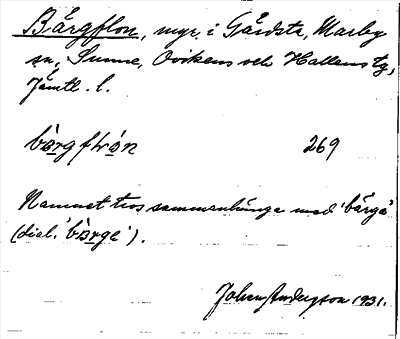 Bärgflon, myr i Gärdsta, Marby
sn, Sunne, Ovikens och Hallens tg,
Jämtl. l.
bàrgftrón 269
Namnet tros sammanhänga med 'bärga'
(dial. 'bàrge').
Johan Anderzson 1931.